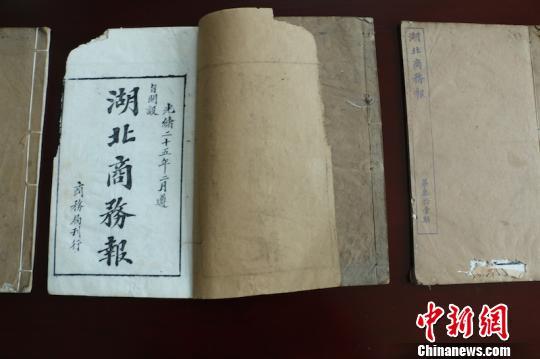 光緒二十五年二月遵
旨開設
湖北商務報
商務局刊行
湖北商務報
中新网
Chinanews.com